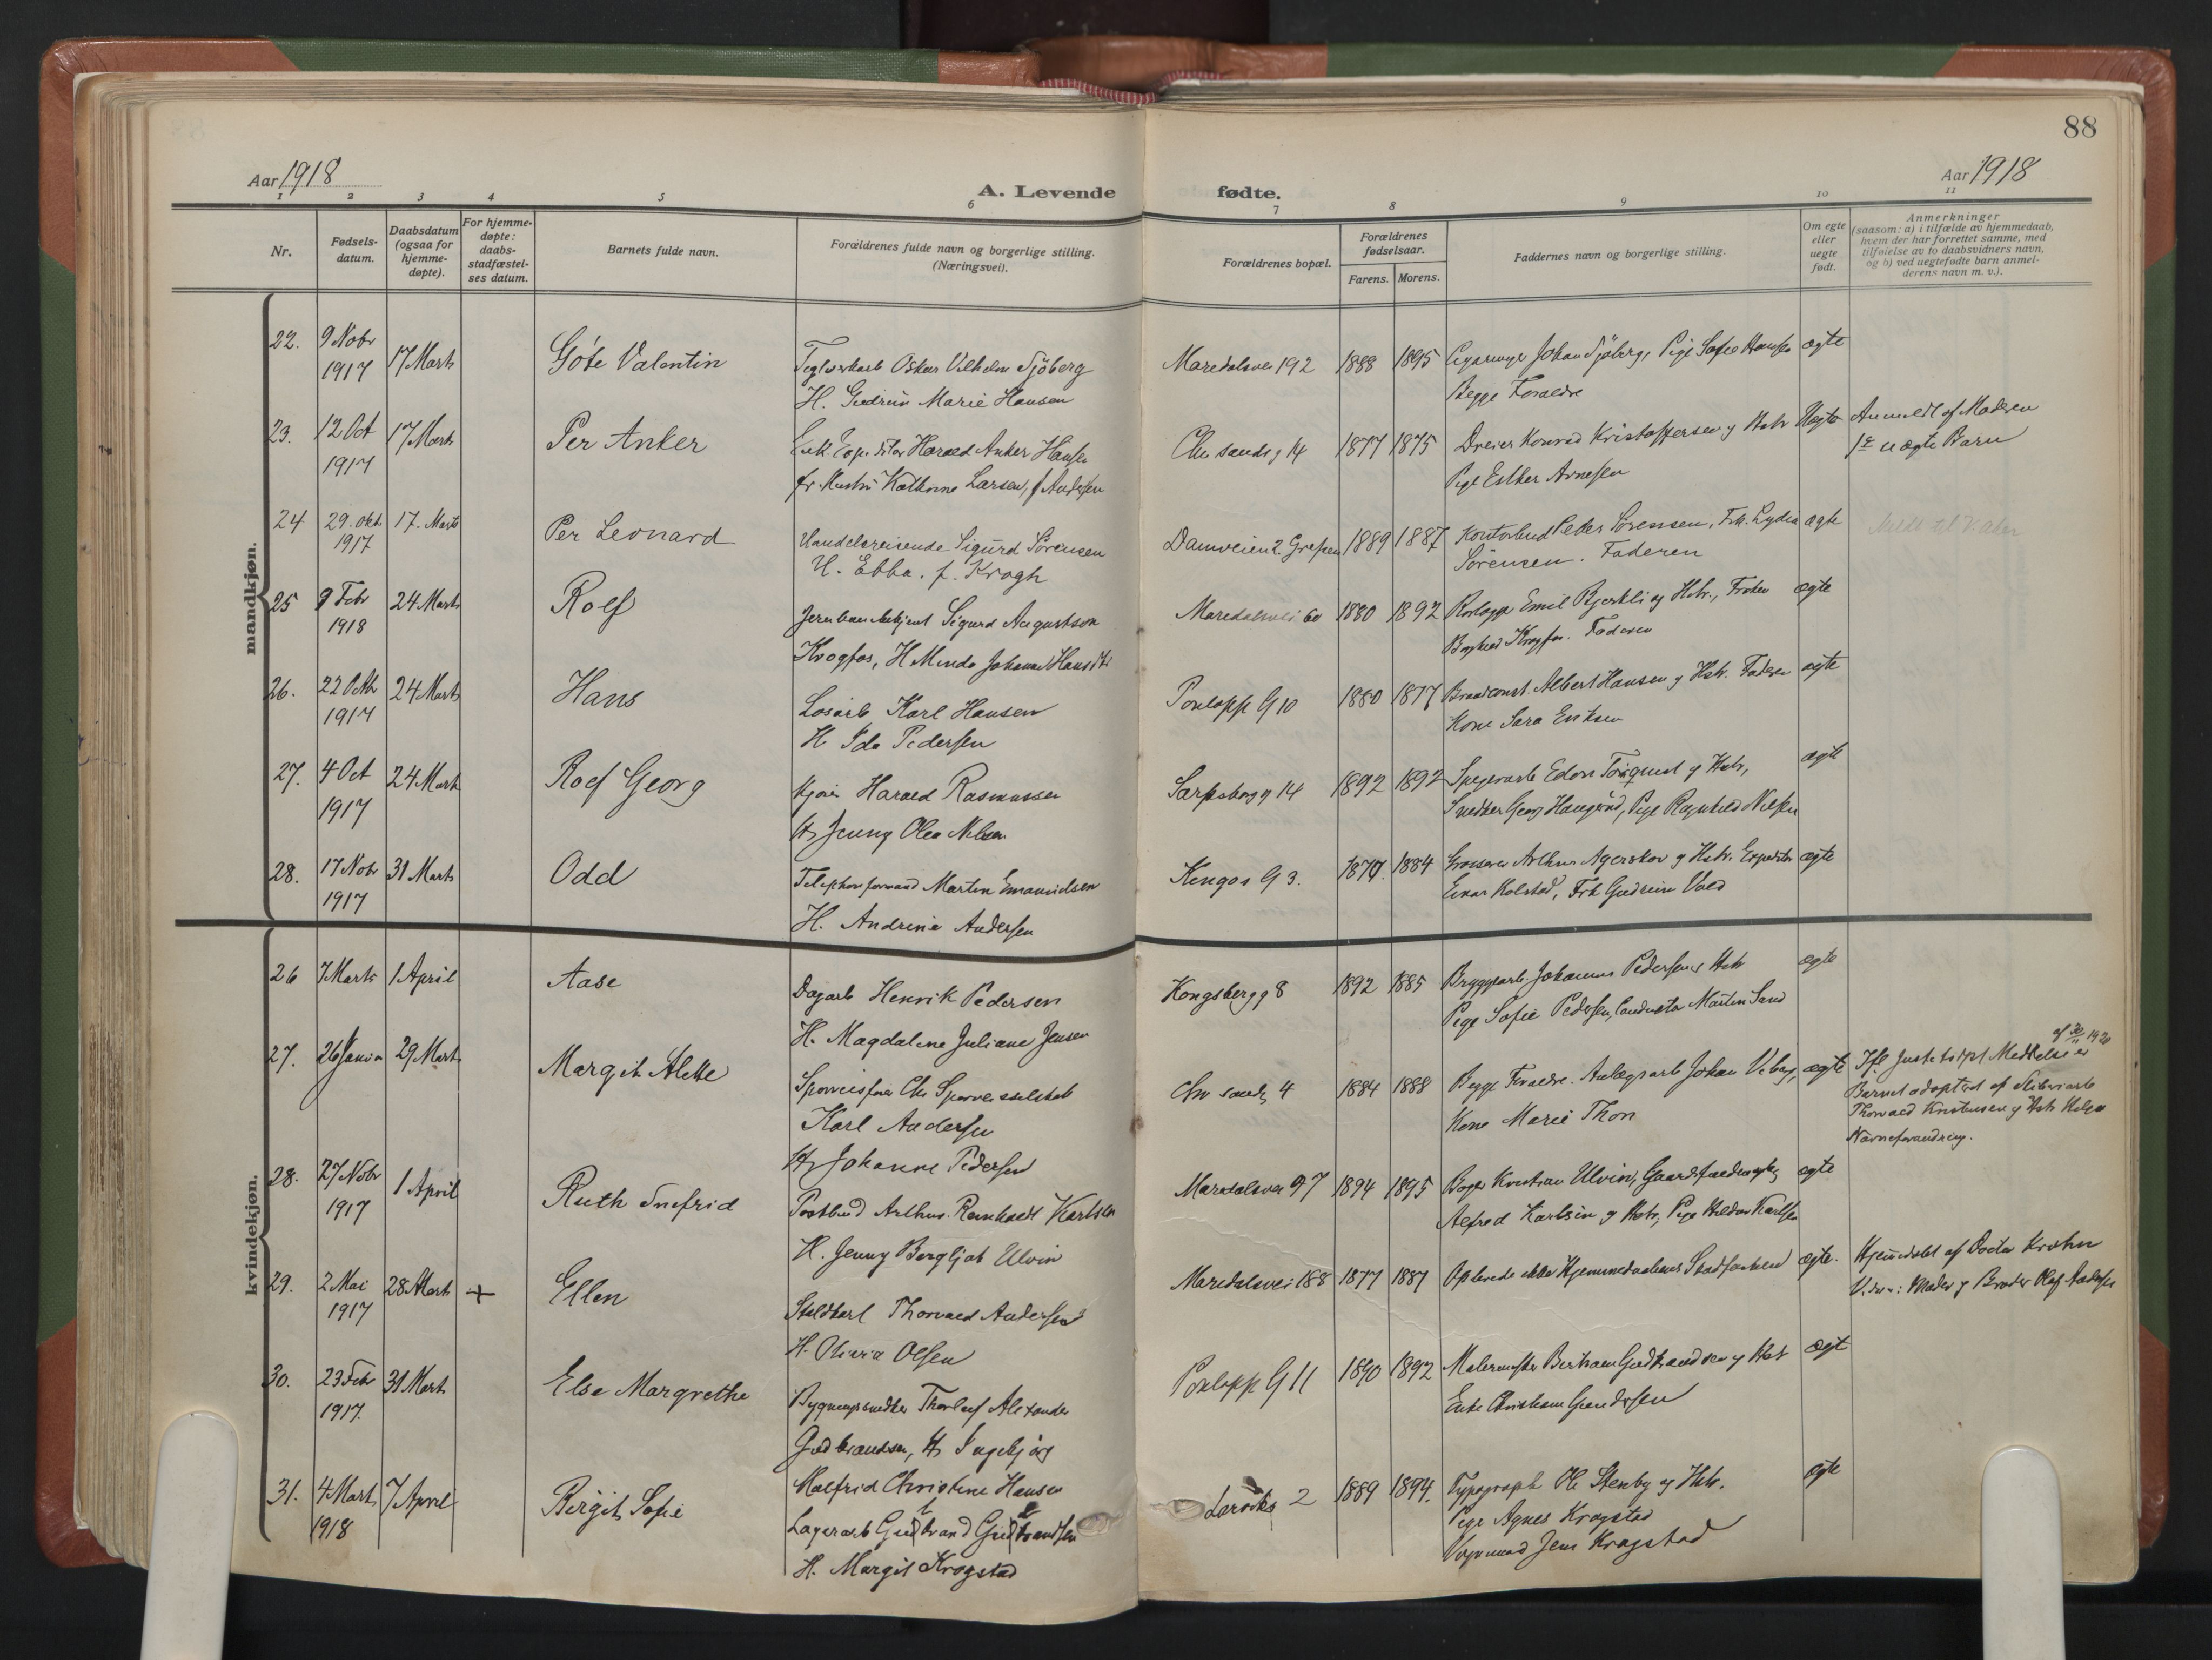 88
Aar 1918
A. Levende fødte.
Aar 1918
1 2 3 4 5 6 7 8 9 10 11
Nr.
Fødsels-
datum.
Daabsdatum
(ogsaa for
hjemme-
døpte).
For hjemme-
døpte:
daabs-
stadfæstel-
ses datum.
Barnets fulde navn.
Forældrenes fulde navn og borgerlige stilling.
(Næringsvei).
Forældrenes bopæl.
Forældrenes
fødselsaar.
Farens. Morens.
Faddernes navn og borgerlige stilling.
Om egte
eller
uegte
født.
Anmerkninger
(saasom: a) i tilfælde av hjemmedaab,
hvem der har forrettet samme, med
tilføielse av to daabsvidners navn,
og b) ved uegtefødte barn anmel-
derens navn m. v.).
mandkjøn.
22. 9 Nobr 1917 17 Marts Göte Valentin
Teglverksarb Oskar Vilhelm Sjöberg
H. Gudrun Marie Hansen
Maredalsvei 192 1888 1895
Johan Sjöberg, Pige Sofie Hansen
Begge Foraeldre
ægte
23. 12 Oct 1917 17 Marts Per Anker
Harald Anker Hansen
Kathrine Larsen, f Andersen
Chr sandsg 14 1877 1875
Dreier Konrad Kristoffersen og Hstr
Pige Esther Arnesen
Uegte
Anmeldt af Moderen
1ste uægte Barn
24 29. okt. 1917 17. Marts Per Leonard
Handelsreisende Sigurd Sörensen
H. Ebba. f. Krogh
Damveien 2. Grefsen 1889 1887
Kontorbud Peter Sörensen, Frk. Lydia
Sörensen. Faderen
ægte
25 9 Febr 1918 24 Marts Rolf
Jernbanebetjent Sigurd Augustson
Krogfos, H Minda Johanne
Maredalsvei 60 1880 1892
Emil Bjerkli og Hstr., Frøken
Krogfos. Faderen
ægte
26. 22 Octbr 1917 24 Marts Hans
Losarb Karl Hansen
H Ida Pedersen
Torlopp G 10 1880 1877
Brandconst. Albert Hansen og Hstr. Faderen
Kone Sara Eriksen
ægte
27. 4 Oct 1917 24 Marts Rolf Georg
Harald Rasmussen
H Jenny Olea Nilsen
Sarpsborg g 14 1892 1892
og Hstr,
Snedker Georg Haugerud, Pige Ragnhild Nilsen
ægte
28. 17 Nobr 1917 31 Marts Odd
Telephonformand Martin Emanuelsen
H. Andrine Andersen
Kingos G 3. 1884
Grosserer Arthur Agerskov og Hstr. Expeditør
Einar Kolstad, Frk Gudrun Vold
ægte
kvindekjøn.
26 7 Marts 1 April Aase
Dagarb Henrik Pedersen
H. Magdalene Juliane Jensen
Kongsbergg 8 1892 1885
Bryggearb. Johannes Pedersen og Hstr
Pige Sofie Pedersen, Conductør Martin Sand
ægte
27. 26 Januar 29 Marts Margit Alette
Karl Andersen
H Johanne Pedersen
Chr sandsg 4 1884 1888
Begge Foraeldre. Anlægsarb Johan Viberg,
Kone Marie Thon
ægte
Ifl Justitsdpt Meddelse
af 30/11 1920 er
Barnet adopteret af
Thorvald Kristensen og Hstr Helga
Navneforandring.
28. 27 Nobr 1917 1 April Ruth Snefrid
Postbud Arthur Reinholdt Karlsen
H. Jenny Bergljot Ulvin
Maredalsvei 97 1894 1895
Bager Kristian Ulvin, Gaardsfuldmægtig
Alfred Karlsen og Hstr, Pige Hildur Karlsen
ægte
29. 2 Mai 1917 28 Marts + Ellen
Staldkarl Thorvald Andersen
H. Olivia Olsen
Maredalsvei 188 1877 1887
Oplevede ikke Hjemmedaabens Stadfæstelse
ægte.
Hjemdøbt af Doctor Krohn
Vidner: Moder og Broder Olaf Andersen
30. 23 Febr 1917. 31 Marts Else Margrethe
Bygningssnedker Thorleif Alexander
Gudbrandsen, H Ingebjørg
Malfrid Christine Hansen
Torlopp G 11 1890 1892
Malermester Bertram Gudbrandsen og Hstr
Enke Christiane Gundersen
ægt
31. 4 Marts 1918 7 April Birgit Sofie
Lagerarb Gudbrand Gudbrandsen
H. Margit Krogstad
Larviks 2 1889 1894.
Typograph Ole Stenby og Hstr.
Pige Agnes Krogstad
Jens Krogstad
ægte